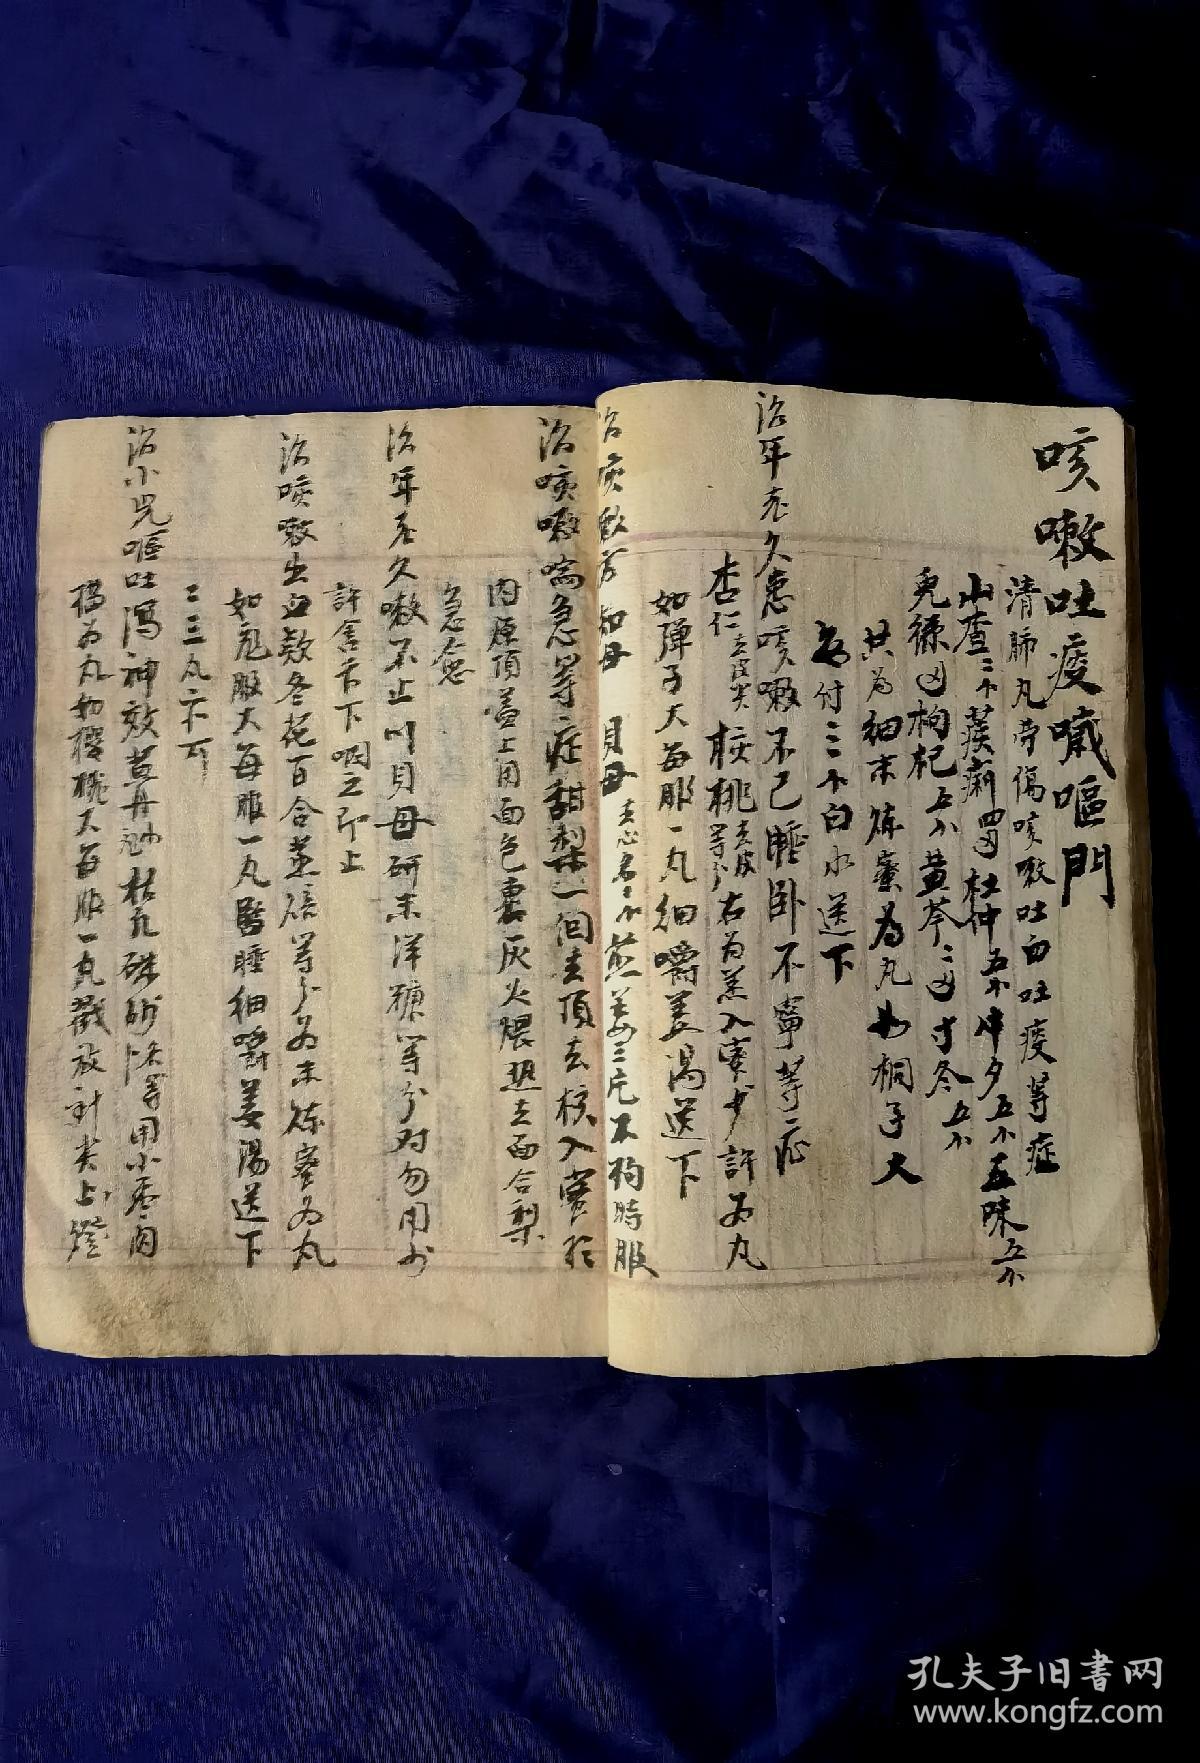 咳嗽吐痰喘嘔門
清肺丸 勞傷咳嗽吐血吐痰等症
山查 杜仲 五小 牛夕五小 五味五小
枸杞五小 黄芩二 寸冬五小
共為細末煉蜜為丸如桐子大
付二三小白水送下
治年老久患咳嗽不已睡卧不寧等症
杏仁去皮尖 核桃去皮等分 右為羔入蜜少許為丸
如彈子大每服一丸細嚼姜湯送下
治痰嗽方 知母 貝母去心各二小 煎姜三片不拘時服
治咳嗽喘急等症甜梨一個去頂去核入蜜於
内原頂蓋上用面包裹灰火煨熟去面合梨
急愈
治年老久嗽不止川貝母研末洋糖等分对勻用少
許含舌下咽之即止
治咳嗽出血欵冬花百合蒸焙等分为末煉蜜为丸
大每服一丸臨睡細嚼姜湯送下
二三丸亦可
治小兒嘔吐瀉神效黄丹 枯凡 硃砂 等用小枣肉
搗为丸如櫻桃大每服一丸戳放針尖上燈
孔夫子旧書网
www.kongfz.com